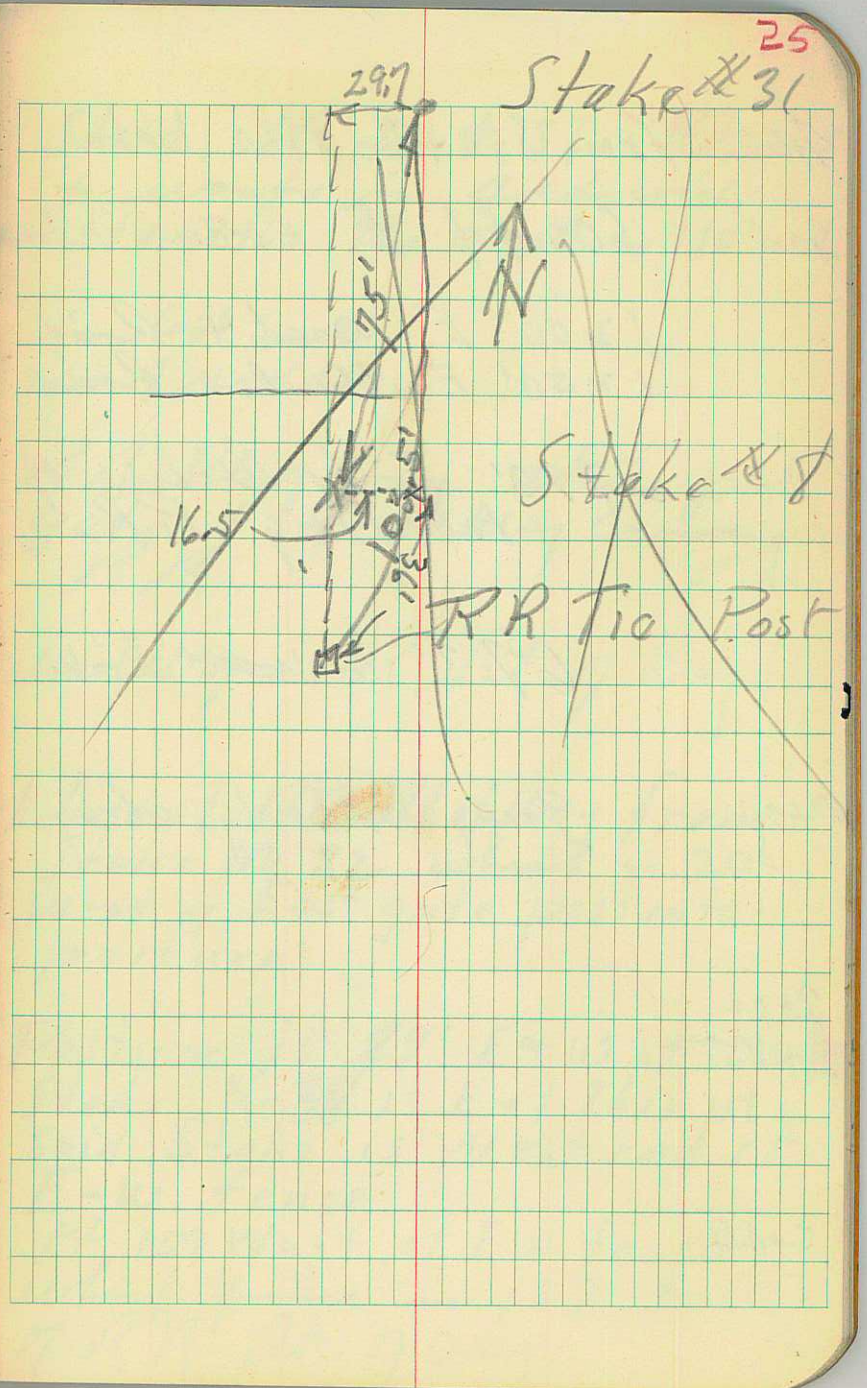 25
29.7
Stake # 31
N
75'
Stake # 8
16.5
36'
RR Tie Post